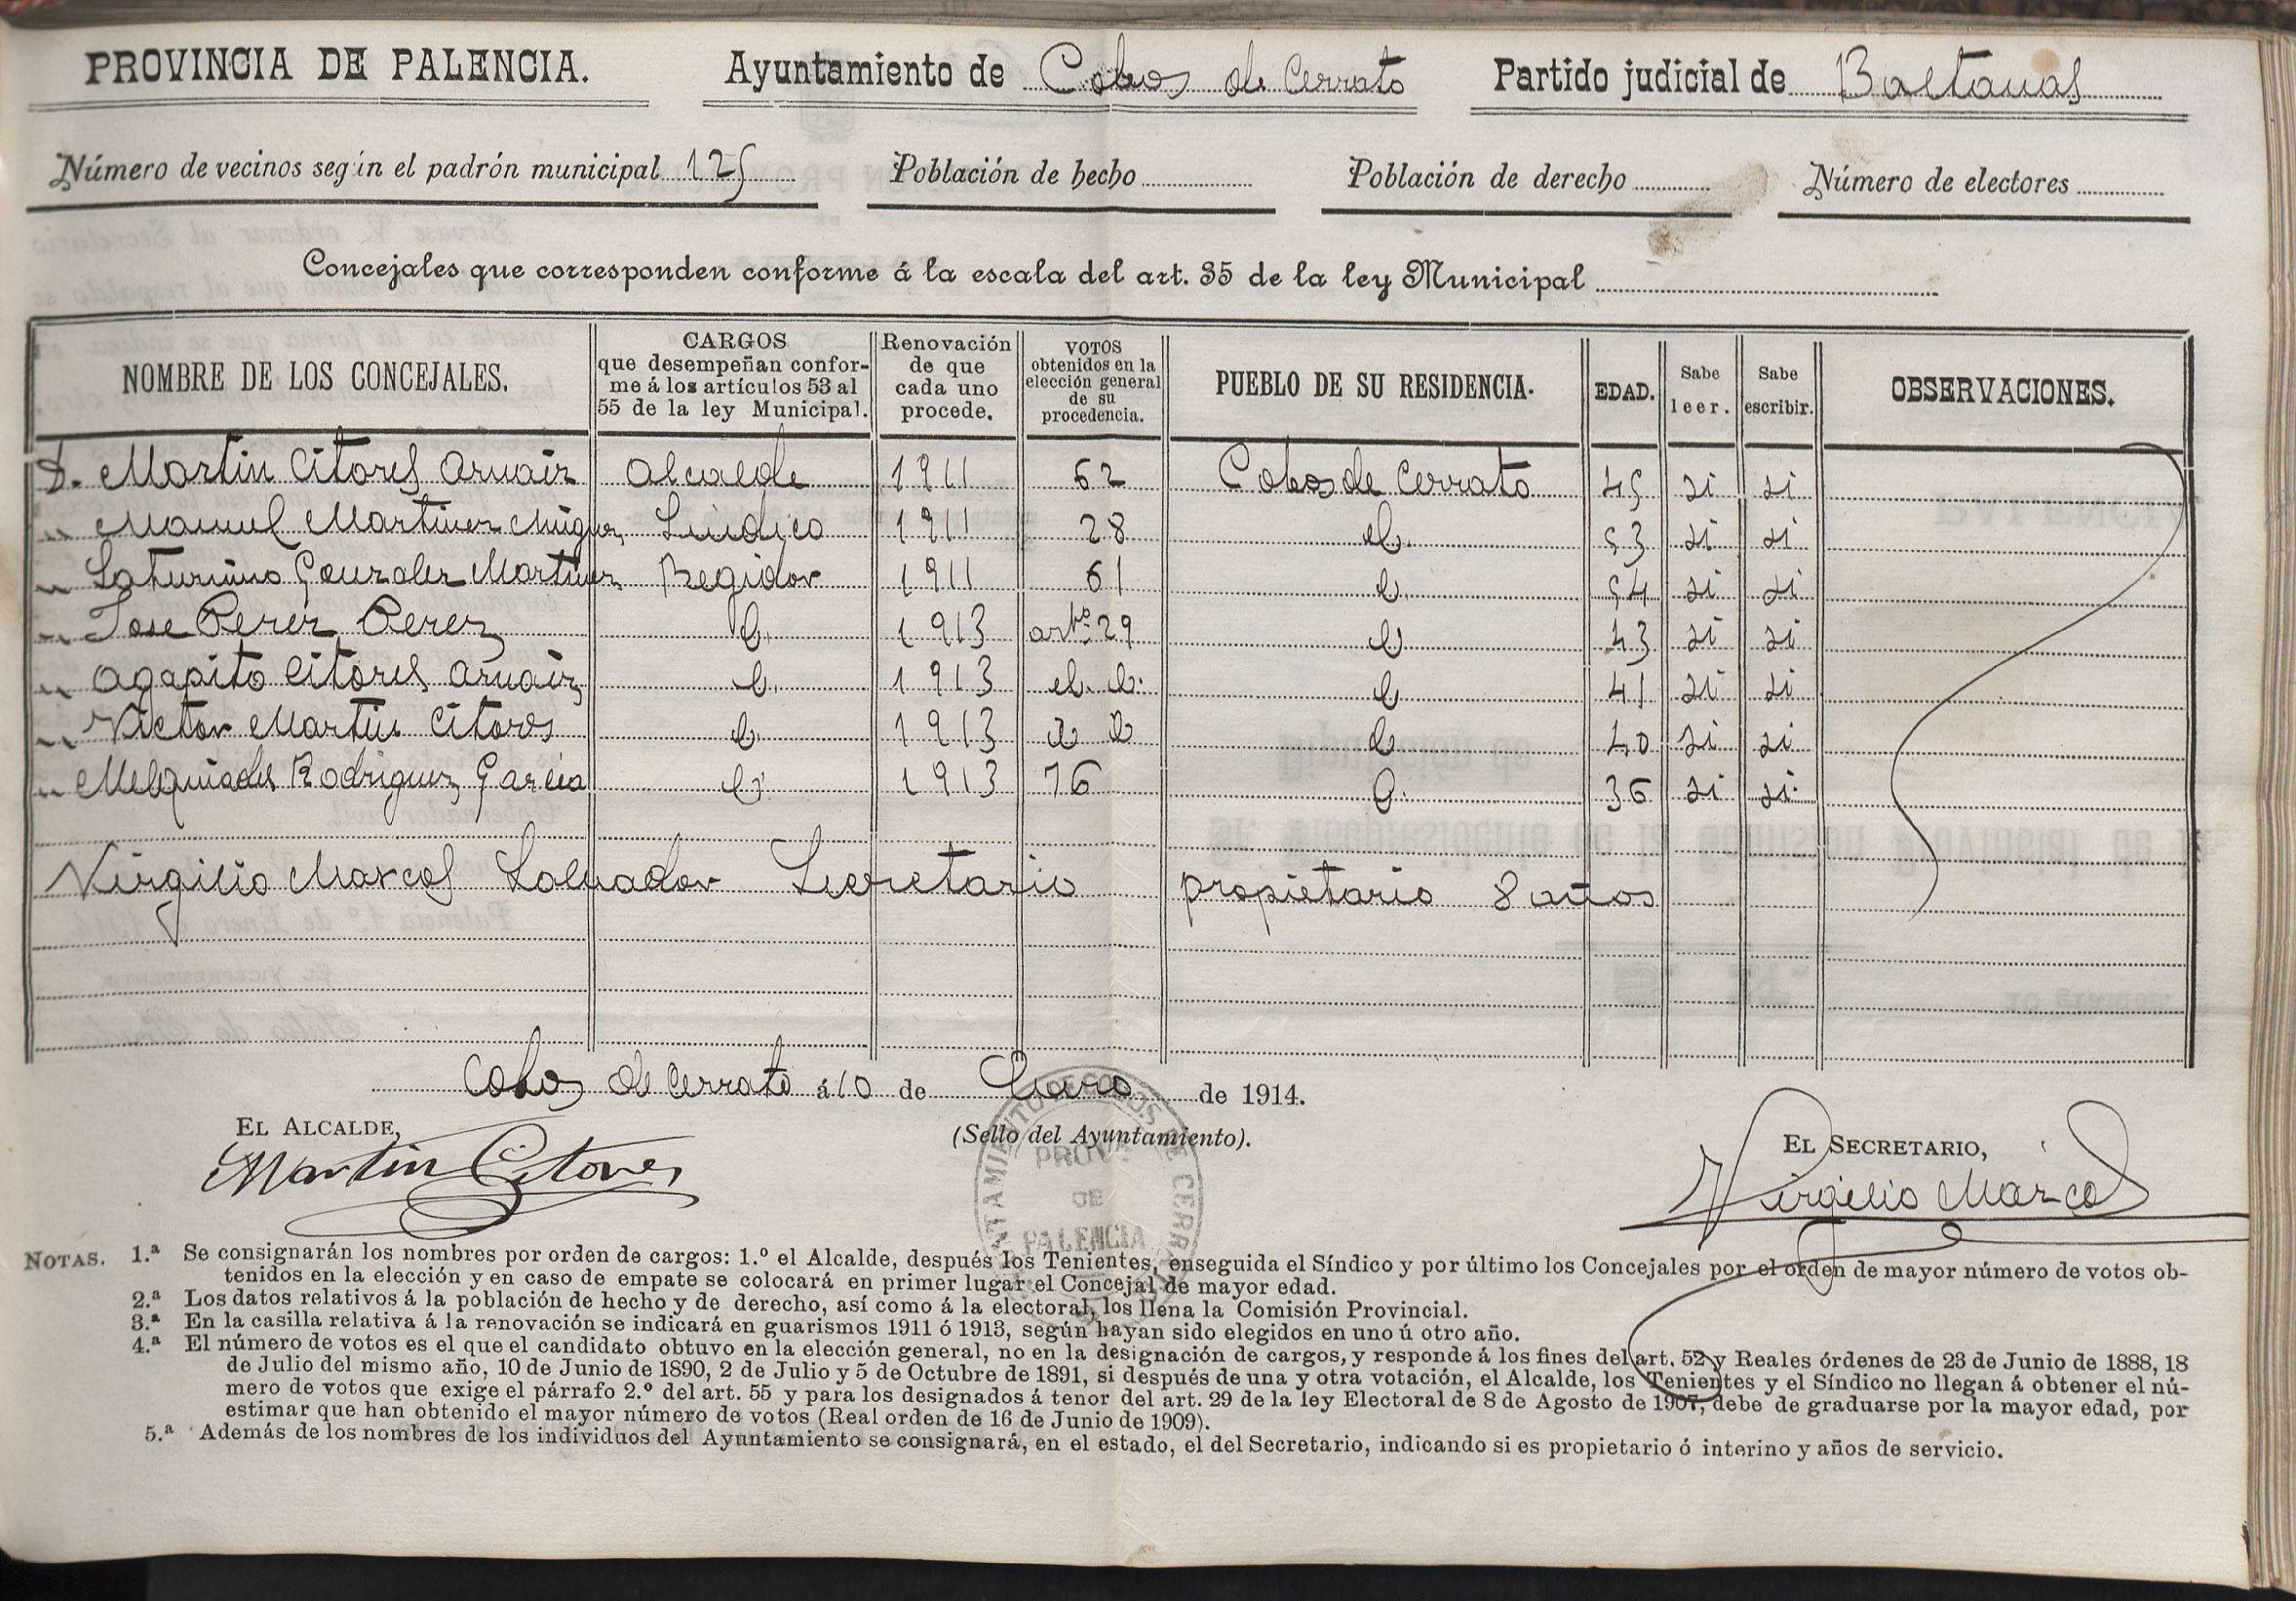 PROVINCIA DE PALENCIA. Ayuntamiento de Cobos de Cerrato Partido judicial de Baltanas
Número de vecinos según el padrón municipal 125 Población de hecho Población de derecho Número de electores
Concejales que corresponden conforme á la escala del art. 35 de la ley Municipal
NOMBRE DE LOS CONCEJALES. CARGOS que desempeñan confor- me á los artículos 53 al 55 de la ley Municipal. Renovación de que cada uno procede. VOTOS obtenidos en la elección general de su procedencia. PUEBLO DE SU RESIDENCIA. EDAD. Sabe leer. Sabe escribir. OBSERVACIONES.
D. Martin Citores Arnaiz Alcalde 1911 62 Cobos de Cerrato 45 si si
" Manuel Martinez Miguez Sindico 1911 28 id. 53 si si
" Saturnino Gonzalez Martinez Regidor 1911 61 id. 54 si si
" Jose Perez Perez id. 1913 arto. 29 id 43 si si
" Agapito Citores Arnaiz id. 1913 id. id. id 41 si si
" Victor Martin Citores id. 1913 id id id 40 si si
" Melquiades Rodriguez Garcia id 1913 76 id. 36 si si
Virgilio Marcos Salvador Secretario propietario 8 años
Cobos de Cerrato á 10 de Enero de 1914.
EL ALCALDE, (Sello del Ayuntamiento). EL SECRETARIO,
Martin Citores Virgilio Marcos
AYUNTAMIENTO DE COBOS DE CERRATO
PROVA
DE
PALENCIA
NOTAS. 1.ª Se consignarán los nombres por orden de cargos: 1.º el Alcalde, después los Tenientes, enseguida el Síndico y por último los Concejales por el orden de mayor número de votos ob-
tenidos en la elección y en caso de empate se colocará en primer lugar el Concejal de mayor edad.
2.ª Los datos relativos á la población de hecho y de derecho, así como á la electoral, los llena la Comisión Provincial.
3.ª En la casilla relativa á la renovación se indicará en guarismos 1911 ó 1913, según hayan sido elegidos en uno ú otro año.
4.ª El número de votos es el que el candidato obtuvo en la elección general, no en la designación de cargos, y responde á los fines del art. 52 y Reales órdenes de 23 de Junio de 1888, 18
de Julio del mismo año, 10 de Junio de 1890, 2 de Julio y 5 de Octubre de 1891, si después de una y otra votación, el Alcalde, los Tenientes y el Síndico no llegan á obtener el nú-
mero de votos que exige el párrafo 2.º del art. 55 y para los designados á tenor del art. 29 de la ley Electoral de 8 de Agosto de 1907, debe de graduarse por la mayor edad, por
estimar que han obtenido el mayor número de votos (Real orden de 16 de Junio de 1909).
5.ª Además de los nombres de los individuos del Ayuntamiento se consignará, en el estado, el del Secretario, indicando si es propietario ó interino y años de servicio.